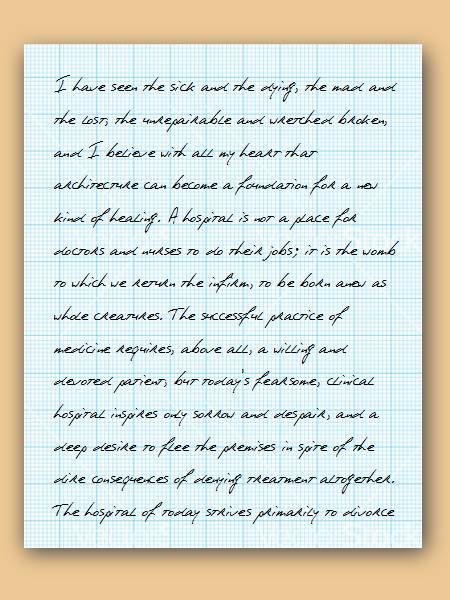 I have seen the sick and the dying, the mad and
the lost, the unrepairable and wretched broken,
and I believe with all my heart that
architecture can become a foundation for a new
kind of healing. A hospital is not a place for
doctors and nurses to do their jobs; it is the womb
to which we return the infirm, to be born anew as
whole creatures. The successful practice of
medicine requires, above all, a willing and
devoted patient, but today's fearsome, clinical
hospital inspires only sorrow and despair, and a
deep desire to flee the premises in spite of the
dire consequences of denying treatment altogether.
The hospital of today strives primarily to divorce